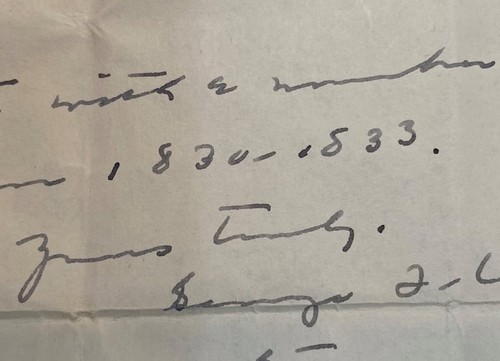 with a number
1830-1833.
Yours truly.
George